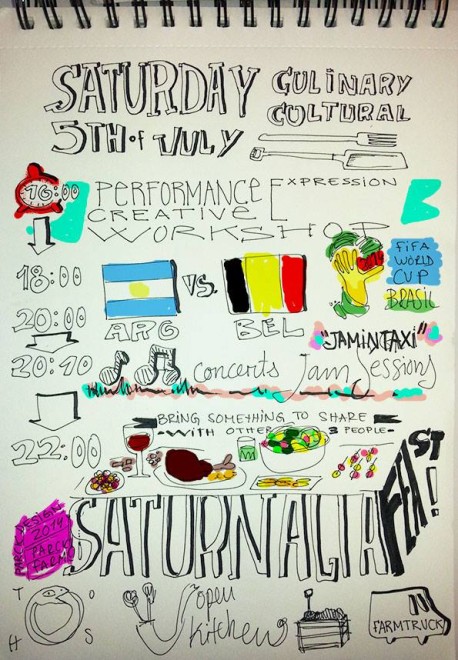 SATURDAY
5TH of JULY
CULINARY
CULTURAL
16:00
PERFORMANCE EXPRESSION
CREATIVE
WORKSHOP
18:00
VS.
FIFA
WORLD
CUP
BRASIL
20:00
ARG
BEL
"JAMINTAXI"
20:10
Concerts Jam Sessions
BRING SOMETHING TO SHARE
-WITH OTHER 3 PEOPLE-
22:00
SATURNALIA
FEAST!
DESIGN
2014
PARCK
FARM
T O
H S
open
Kitchen
FARMTRUCK